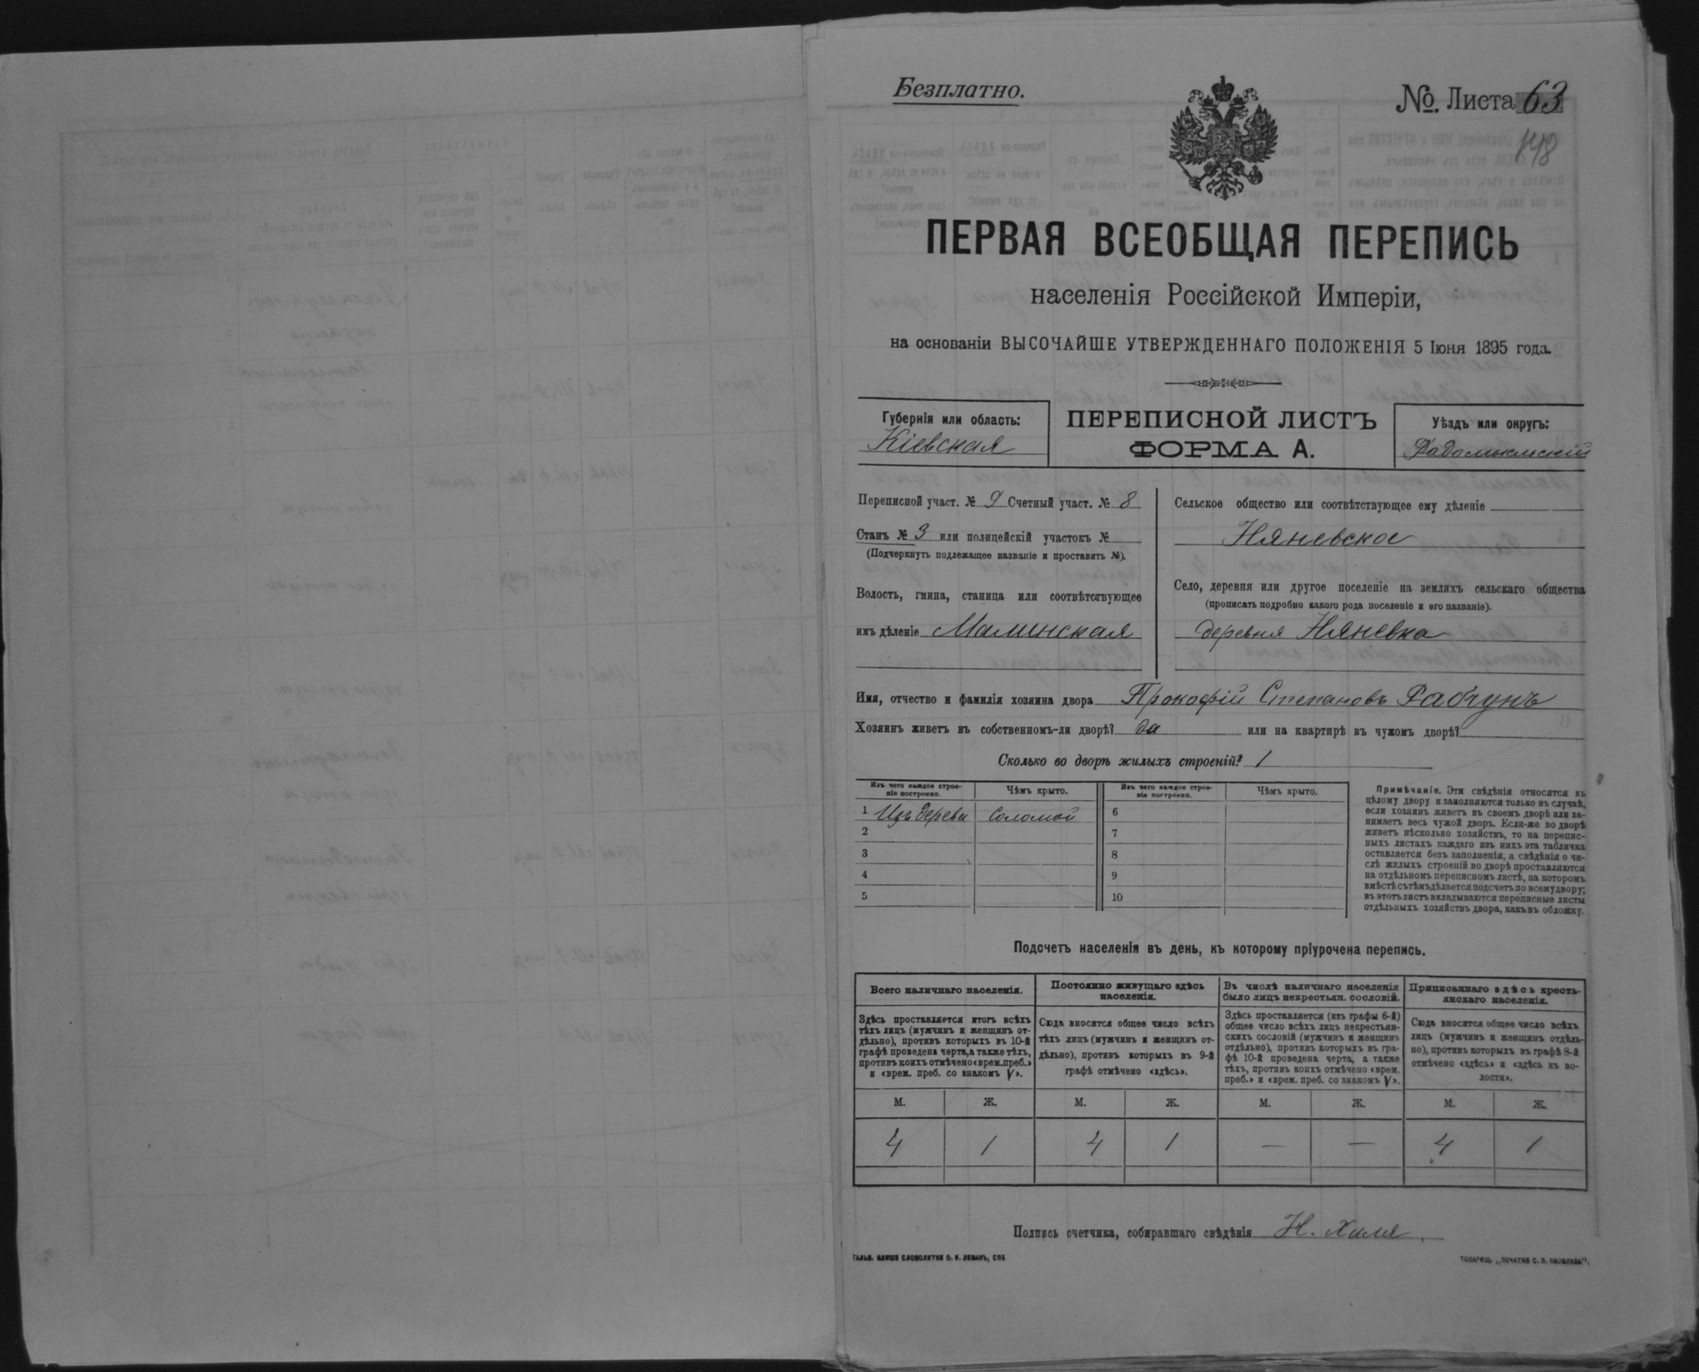 Безплатно.
№. Листа 63
148
ПЕРВАЯ ВСЕОБЩАЯ ПЕРЕПИСЬ
населенія Россійской Имперіи,
на основаніи ВЫСОЧАЙШЕ УТВЕРЖДЕННАГО ПОЛОЖЕНІЯ 5 Іюня 1895 года.
Губернія или область:
Кіевская
ПЕРЕПИСНОЙ ЛИСТЪ
ФОРМА А.
Уѣздъ или округъ:
Радомысльскій
Переписной участ. № 9 Счетный участ. № 8
Станъ № 3 или полицейскій участокъ №
(Подчеркнуть подлежащее названіе и проставить №).
Волость, гмина, станица или соотвѣтствующее
имъ дѣленіе Малинская
Сельское общество или соотвѣтствующее ему дѣленіе
Няневское
Село, деревня или другое поселеніе на земляхъ сельскаго общества
(прописать подробно какого рода поселеніе и его названіе).
деревня Няневка
Имя, отчество и фамилія хозяина двора Прокофій Степановъ Рабчунъ
Хозяинъ живетъ въ собственномъ-ли дворѣ? да или на квартирѣ въ чужомъ дворѣ?
Сколько во дворѣ жилыхъ строеній? 1
Изъ чего каждое строе-
ніе построено.
Чѣмъ крыто.
Изъ чего каждое строе-
ніе построено.
Чѣмъ крыто.
1 Изъ дерева Соломой 6
2 7
3 8
4 9
5 10
Примѣчаніе. Эти свѣдѣнія относятся къ
цѣлому двору и заполняются только въ случаѣ,
если хозяинъ живетъ въ своемъ дворѣ или за-
нимаетъ весь чужой дворъ. Если-же во дворѣ
живетъ нѣсколько хозяйствъ, то на перепис-
ныхъ листахъ каждаго изъ нихъ эта табличка
оставляется безъ заполненія, а свѣдѣнія о чи-
слѣ жилыхъ строеній во дворѣ проставляются
на отдѣльномъ переписномъ листѣ, на которомъ
вмѣстѣ съ тѣмъ дѣлается подсчетъ по всему двору;
въ этотъ листъ вкладываются переписные листы
отдѣльныхъ хозяйствъ двора, какъ въ обложку.
Подсчетъ населенія въ день, къ которому пріурочена перепись.
Всего наличнаго населенія.
Здѣсь проставляется итогъ всѣхъ
тѣхъ лицъ (мужчинъ и женщинъ от-
дѣльно), противъ которыхъ въ 10-й
графѣ проведена черта, а также тѣхъ,
противъ коихъ отмѣчено «врем. преб.»
и «врем. преб. со знакомъ V».
Постоянно живущаго здѣсь
населенія.
Сюда вносится общее число всѣхъ
тѣхъ лицъ (мужчинъ и женщинъ от-
дѣльно), противъ которыхъ въ 9-й
графѣ отмѣчено «здѣсь».
Въ числѣ наличнаго населенія
было лицъ некрестьян. сословій.
Здѣсь проставляется (изъ графы 6-й)
общее число всѣхъ лицъ некрестьян-
скихъ сословій (мужчинъ и женщинъ
отдѣльно), противъ которыхъ въ гра-
фѣ 10-й проведена черта, а также
тѣхъ, противъ коихъ отмѣчено «врем.
преб.» и «врем. преб. со знакомъ V».
Приписаннаго здѣсь кресть-
янскаго населенія.
Сюда вносится общее число всѣхъ
лицъ (мужчинъ и женщинъ отдѣль-
но), противъ которыхъ въ графѣ 8-й
отмѣчено «здѣсь» и «здѣсь въ во-
лости».
М. Ж. М. Ж. М. Ж. М. Ж.
4 1 4 1 — — 4 1
Подпись счетчика, собиравшаго свѣдѣнія Н. Хиля.
ГАЛЬВ. КЛИШЕ СЛОВОЛИТНИ О. И. ЛЕМАНЪ, СПБ
ТОВАРИЩ. „ПЕЧАТНЯ С. П. ЯКОВЛЕВА".